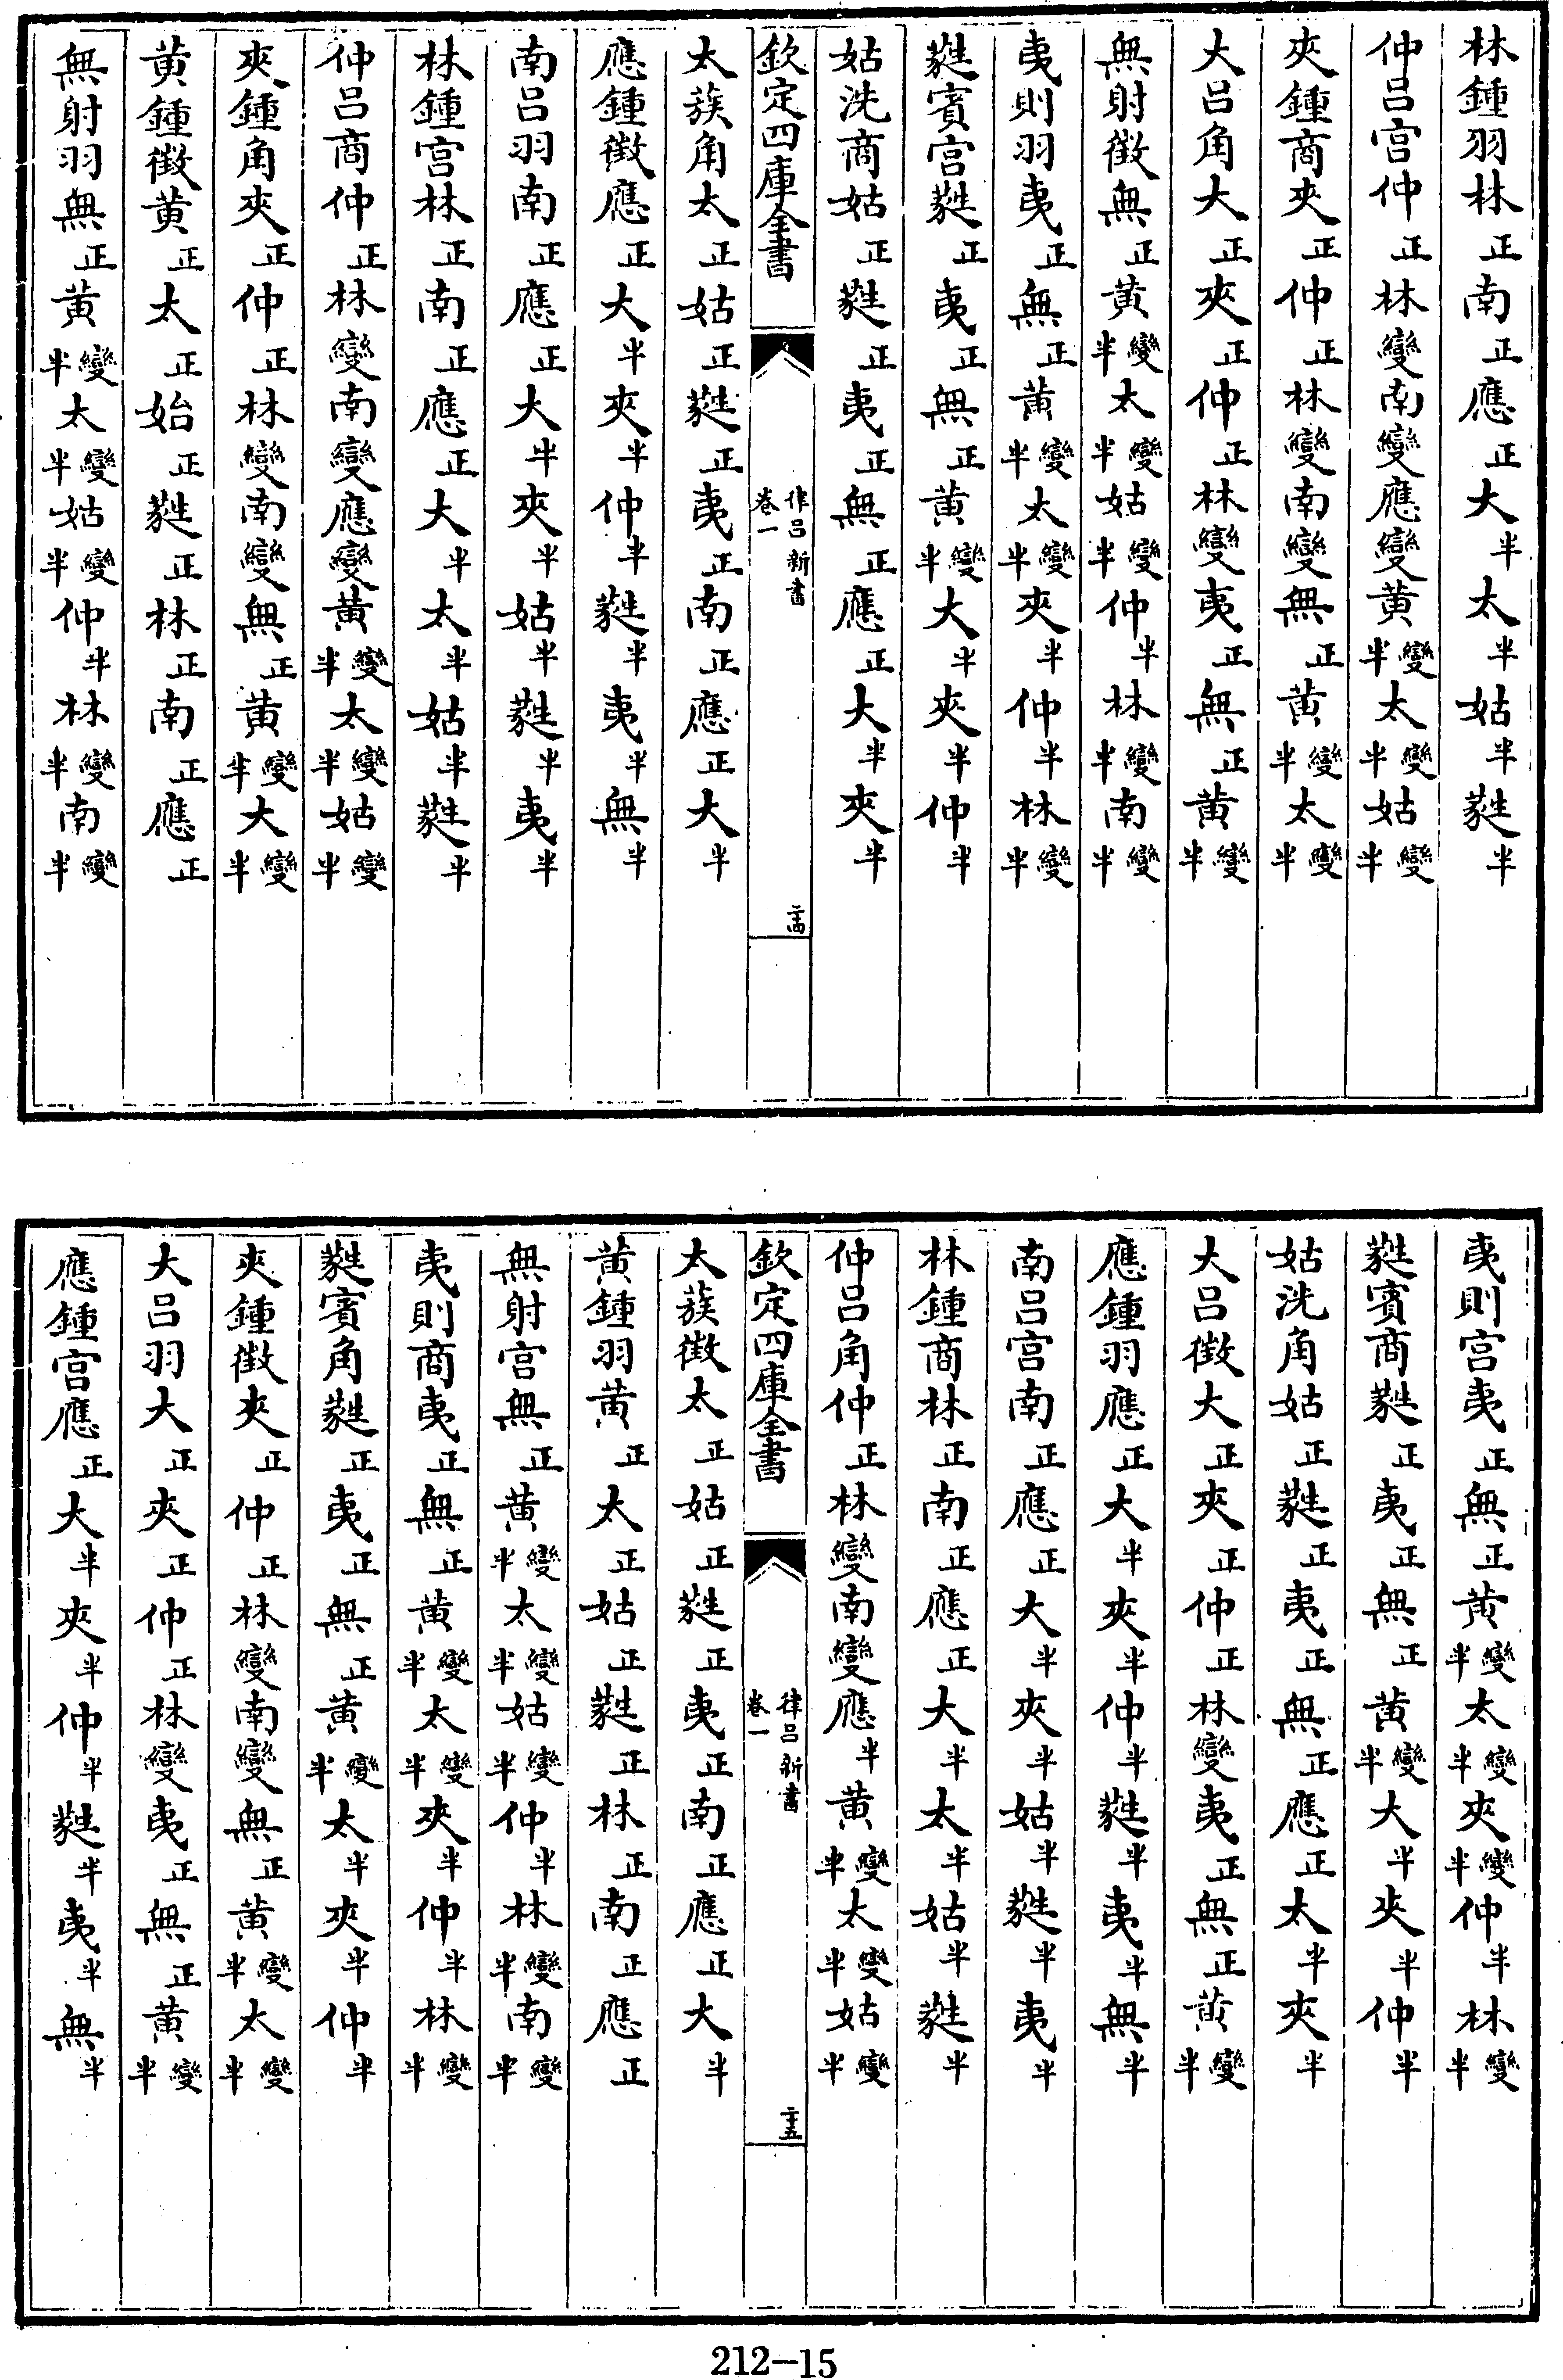 林鍾羽林正南正應正大半太半姑半蕤半
仲呂宫仲正林變南變應變黄變半太變半姑變半
夾鍾商夾正仲正林變南變無正黄變半太變半
大呂角大正夾正仲正林變夷正無正黄變半
無射徵無正黄變半太變半姑變半仲半林變半南變半
夷則羽夷正無正黄變半太變半夾半仲半林變半
蕤賓宫蕤正夷正無正黄變半大半夾半仲半
姑洗商姑正蕤正夷正無正應正大半夾半
欽定四庫全書
律呂新書
卷一
二十四
太蔟角太正姑正蕤正夷正南正應正大半
應鍾徵應正大半夾半仲半蕤半夷半無半
南呂羽南正應正大半夾半姑半蕤半夷半
林鍾宫林正南正應正大半太半姑半蕤半
仲呂商仲正林變南變應變黄變半太變半姑變半
夾鍾角夾正仲正林變南變無正黄變半大變半
黄鍾徵黄正太正始正蕤正林正南正應正
無射羽無正黄變半太變半姑變半仲半林變半南變半
夷則宫夷正無正黄變半太變半夾變半仲半林變半
蕤賓商蕤正夷正無正黄變半大半夾半仲半
姑洗角姑正蕤正夷正無正應正太半夾半
大呂徵大正夾正仲正林變夷正無正黄變半
應鍾羽應正大半夾半仲半蕤半夷半無半
南呂宫南正應正大半夾半姑半蕤半夷半
林鍾商林正南正應正大半太半姑半蕤半
仲呂角仲正林變南變應半黄變半太變半姑變半
欽定四庫全書
律呂新書
卷一
二十五
太蔟徵太正姑正蕤正夷正南正應正大半
黄鍾羽黄正太正姑正蕤正林正南正應正
無射宫無正黄變半太變半姑變半仲半林變半南變半
夷則商夷正無正黄變半太變半夾半仲半林變半
蕤賓角蕤正夷正無正黄變半太半夾半仲半
夾鍾徵夾正仲正林變南變無正黄變半太變半
大呂羽大正夾正仲正林變夷正無正黄變半
應鍾宫應正大半夾半仲半蕤半夷半無半
212-15